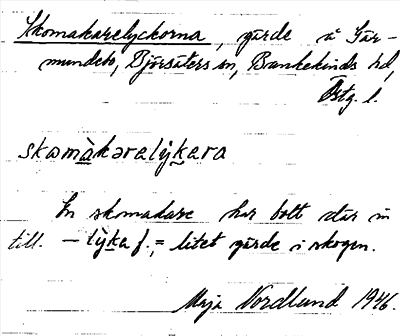 Skomakarelyckorna, gärde å Går-
mundebo, Björsäters sn, Bankekinds hd,
Östg. l.
skomàkaralýkara
En skomakare har bott där in
till. – lýka f. = litet gärde i skogen.
Maja Nordlund 1946.